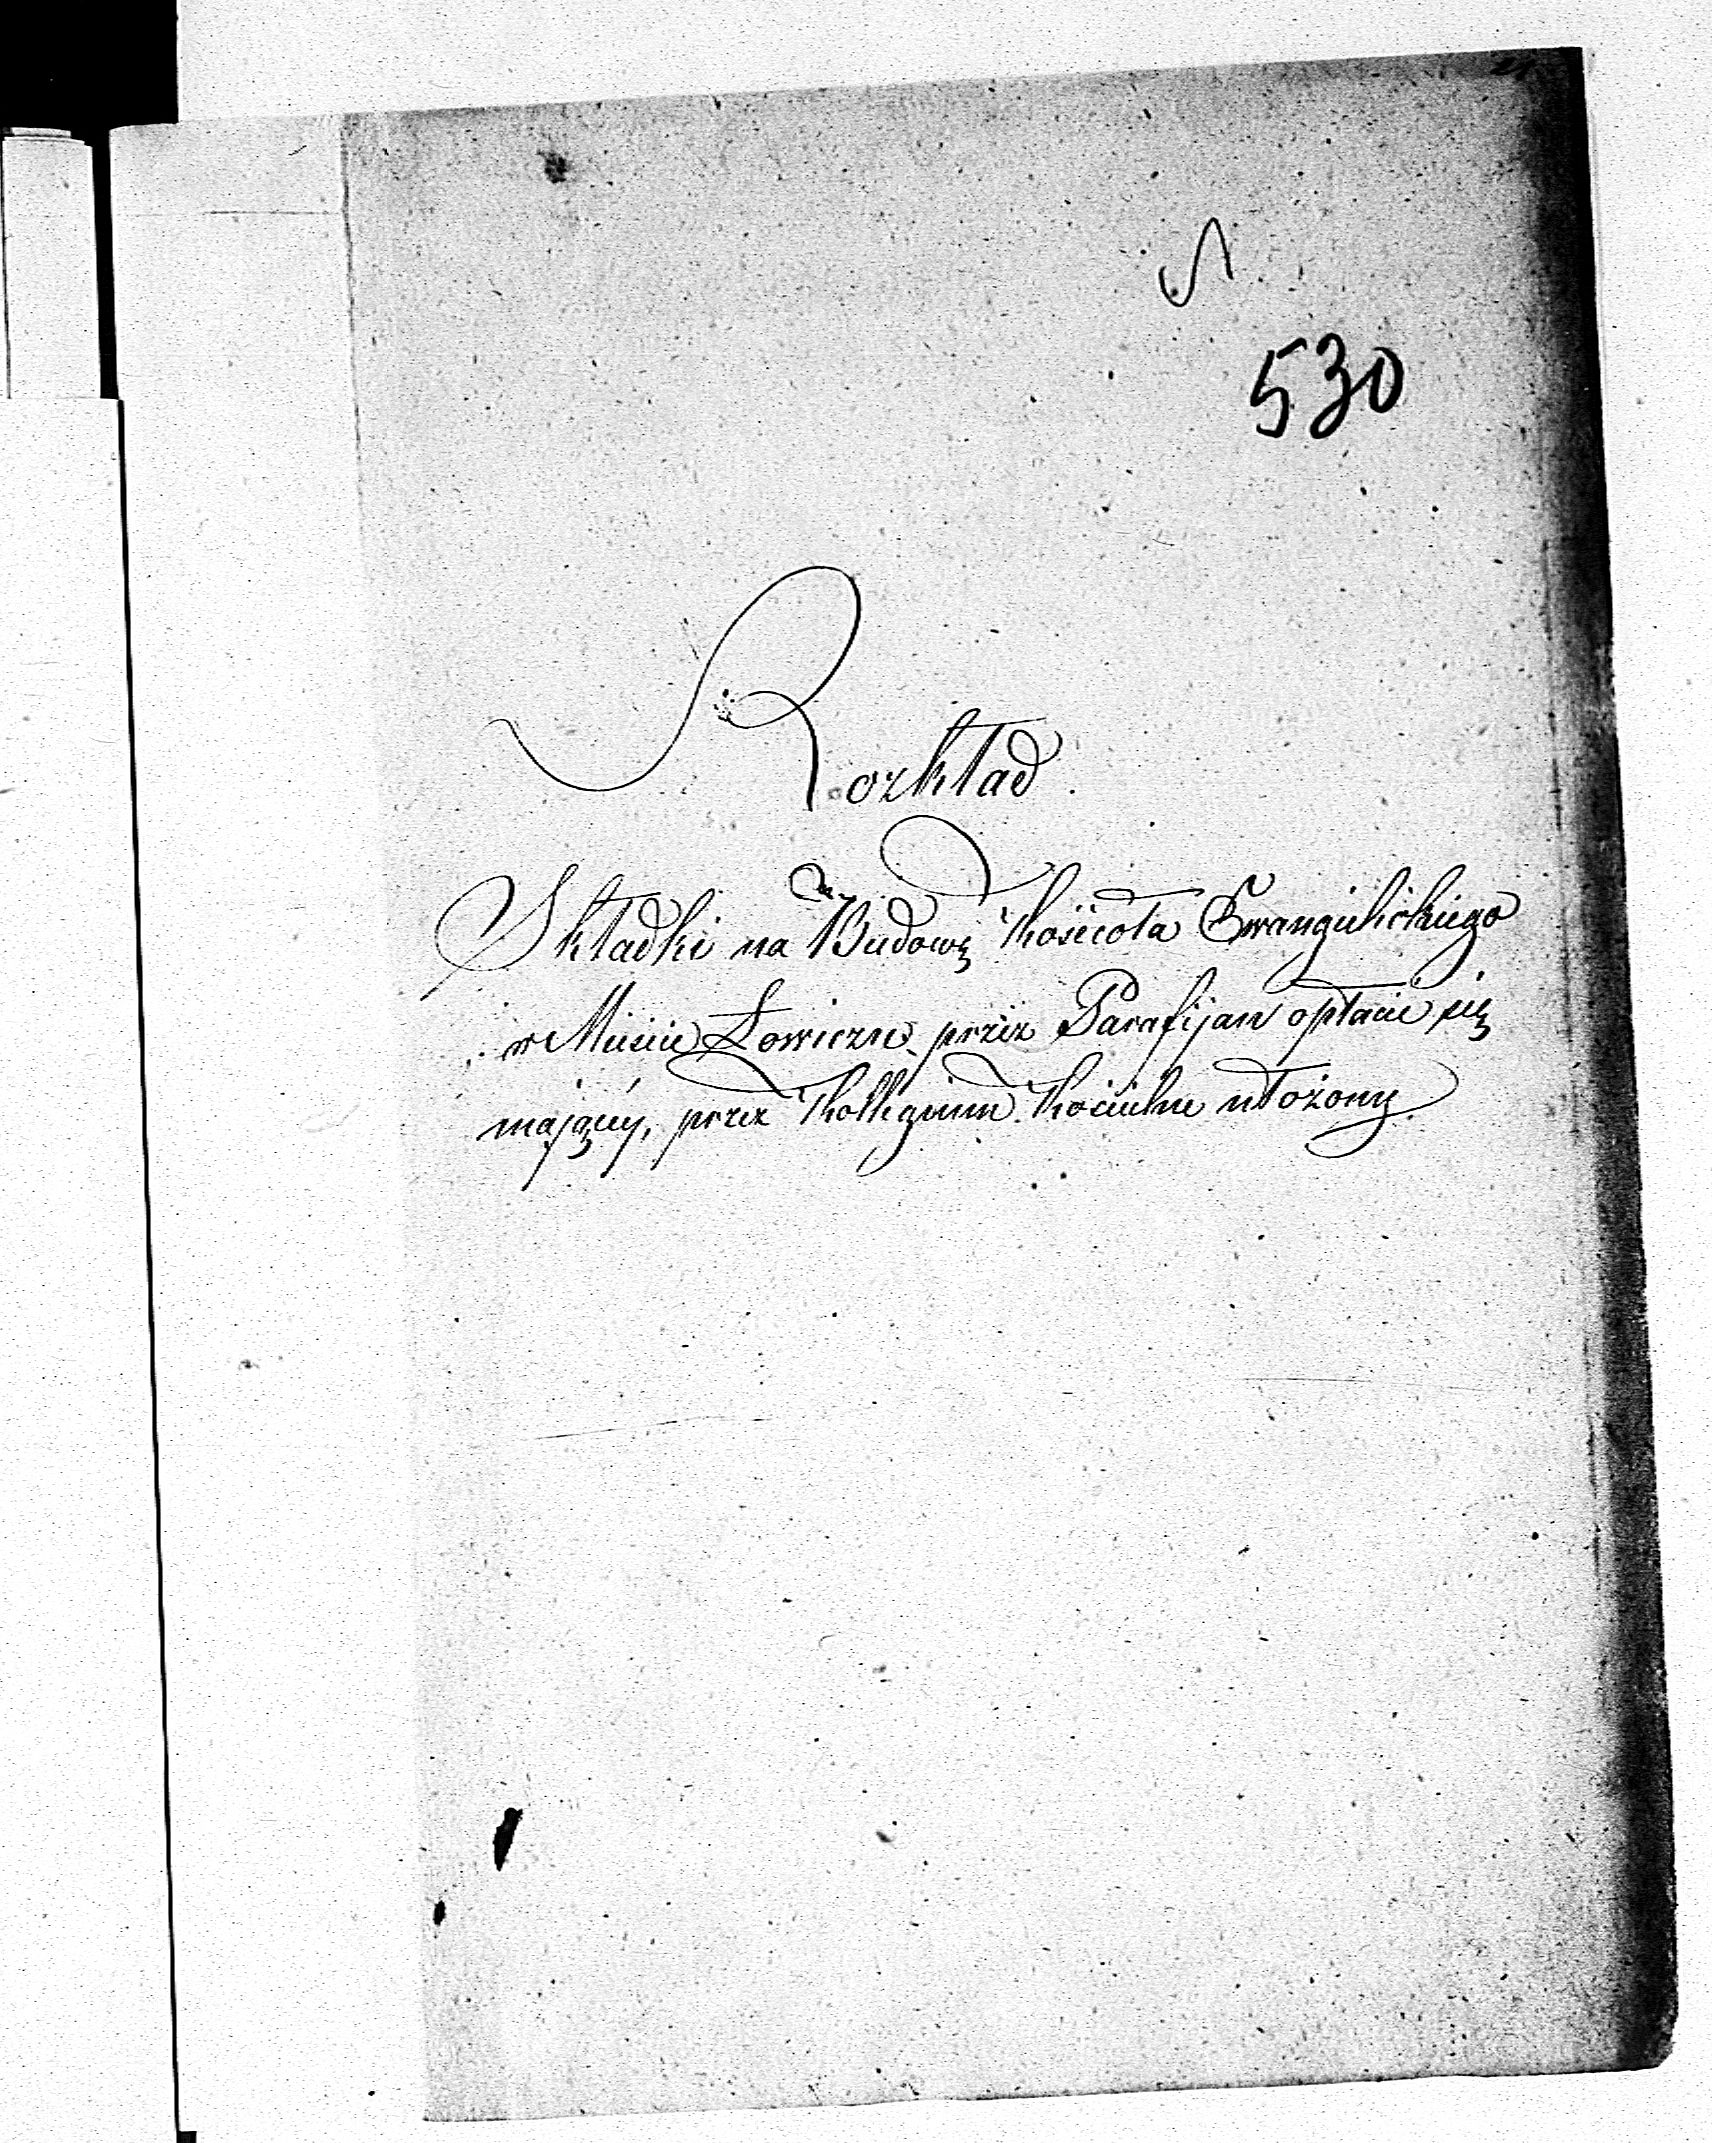 530
Rozkład
Składki na Budowę Kościoła Ewangelickiego
w Mieście Łowiczu przez Parafijan opłacić się
mający, przez Kollegium Kościelne ułożony.